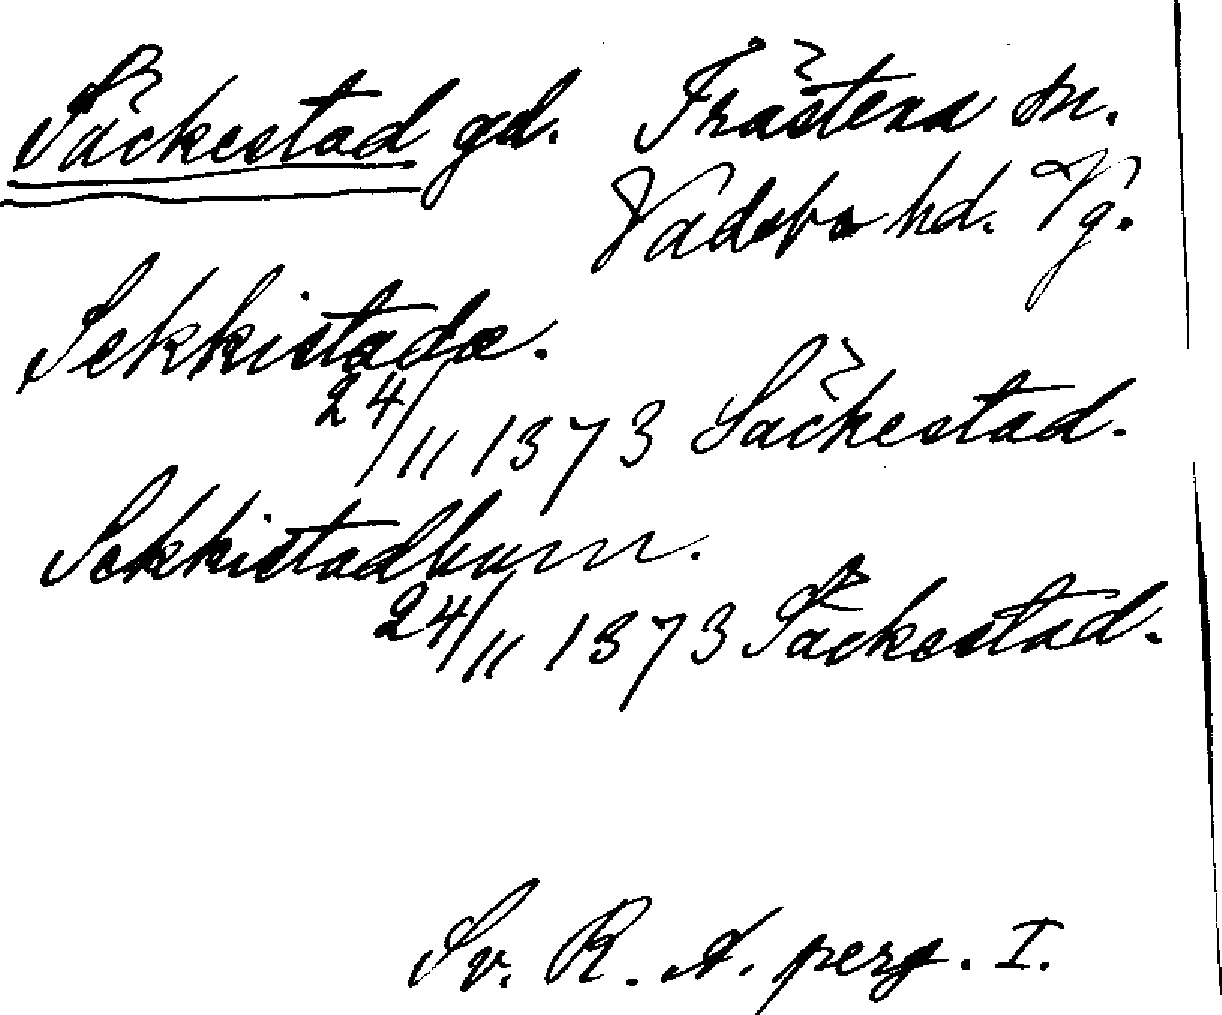 Säckestad gd. Fråstena sn.
Vadsbo hd. Vg.
Sekkistada.
24/11 1373 Säckestad.
Sekkistadhum.
24/11 1373 Säckestad.
Sv. R. A. perg. I.